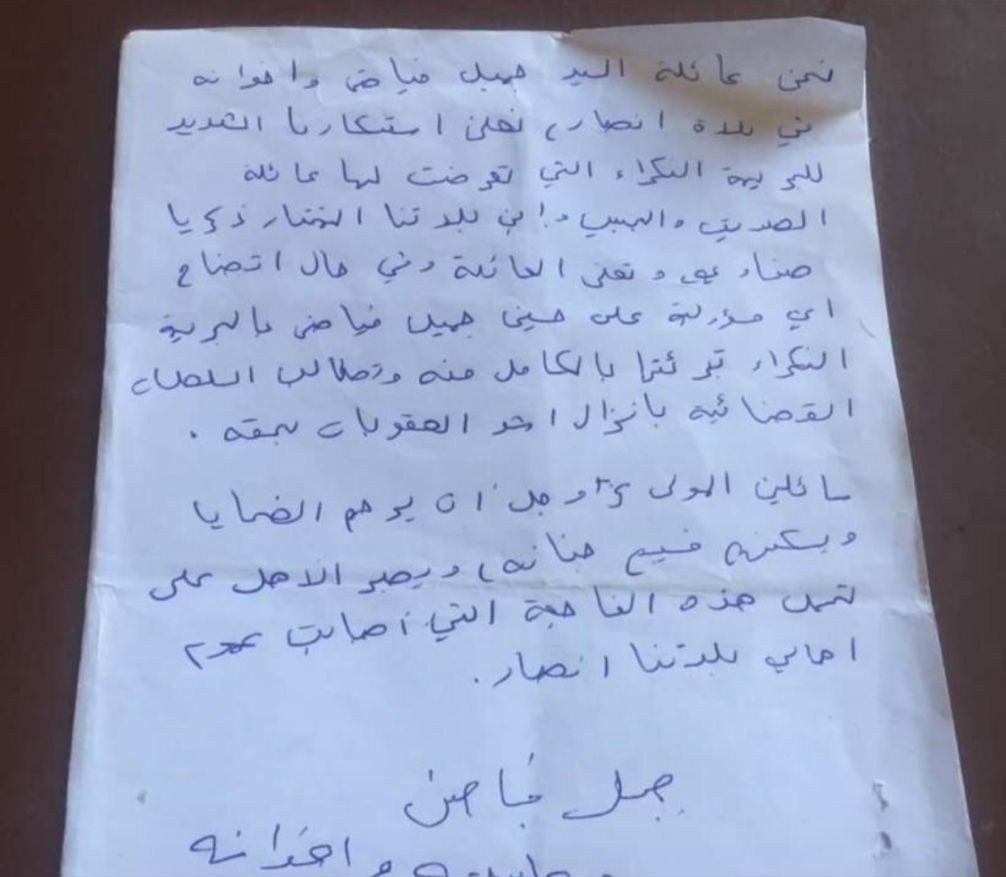 نحن عائلة السيد جميل فياض واخوانه
في بلدة انصار، نعلن استنكارنا الشديد
للجريمة النكراء التي تعرضت لها عائلة
الصديق والحبيب وابن بلدتنا المختار زكريا
صفاوي وتعلن العائلة وفي حال اتضاح
اي مسؤولية على حسين جميل فياض بالجريمة
النكراء تبرئتها بالكامل منه وتطالب السلطات
القضائية بانزال اشد العقوبات بحقه .
سائلين المولى عز وجل ان يرحم الضحايا
ويسكنهم فسيح جنانه، ويصبر الاهل على
تحمل هذه الفاجعة التي أصابت عموم
اهالي بلدتنا انصار.
جميل فياض
وعائلته واخوانه